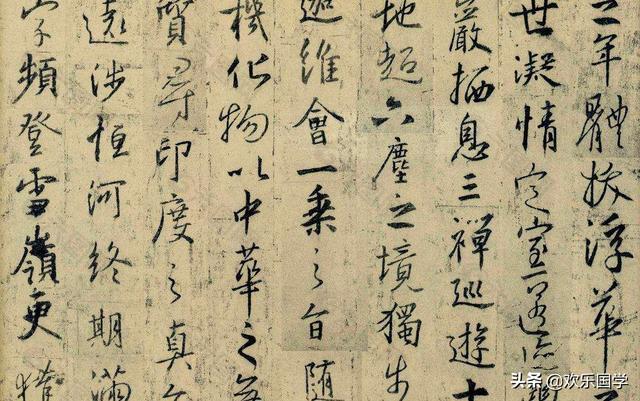 之年體拔浮華之
世凝情定室匿迹幽
巖栖息三禪巡遊十
地超六塵之境獨步
迦維會一乘之旨隨
機化物以中華之無
質尋印度之真文
遠涉恒河終期滿
字頻登雪嶺更獲
头条 @欢乐国学